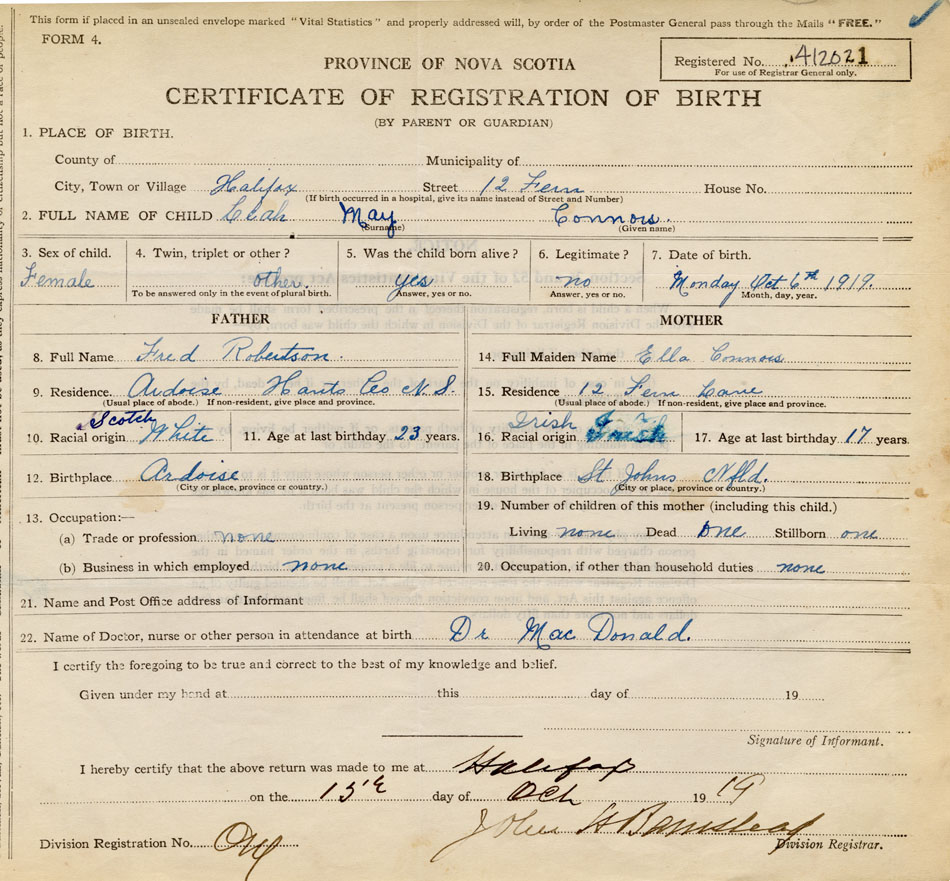 This form if placed in an unsealed envelope marked "Vital Statistics" and properly addressed will, by order of the Postmaster General pass through the Mails "FREE."
FORM 4.
Registered No. 412021
For use of Registrar General only.
PROVINCE OF NOVA SCOTIA
CERTIFICATE OF REGISTRATION OF BIRTH
(BY PARENT OR GUARDIAN)
1. PLACE OF BIRTH.
County of Municipality of
City, Town or Village Halifax Street 12 Fern House No.
(If birth occurred in a hospital, give its name instead of Street and Number)
2. FULL NAME OF CHILD Leah May Connors.
(Surname) (Given name)
3. Sex of child. 4. Twin, triplet or other? 5. Was the child born alive? 6. Legitimate? 7. Date of birth.
Female other. yes no Monday Oct 6th 1919.
To be answered only in the event of plural birth. Answer, yes or no. Answer, yes or no. Month, day, year.
FATHER MOTHER
8. Full Name Fred Robertson. 14. Full Maiden Name Ella Connors
9. Residence. Ardoise Hants Co N.S. 15. Residence 12 Fern Lane
(Usual place of abode.) If non-resident, give place and province. (Usual place of abode.) If non-resident, give place and province.
Scotch Irish
10. Racial origin White 11. Age at last birthday 23 years. 16. Racial origin 17. Age at last birthday 17 years.
12. Birthplace Ardoise 18. Birthplace St Johns Nfld.
(City or place, province or country.) (City or place, province or country.)
13. Occupation:— 19. Number of children of this mother (including this child.)
(a) Trade or profession none Living none Dead one Stillborn one
(b) Business in which employed none 20. Occupation, if other than household duties none
21. Name and Post Office address of Informant
22. Name of Doctor, nurse or other person in attendance at birth Dr Mac Donald.
I certify the foregoing to be true and correct to the best of my knowledge and belief.
Given under my hand at this day of 19
Signature of Informant.
I hereby certify that the above return was made to me at Halifax
on the 15th day of Oct 1919
John
Division Registration No. Division Registrar.